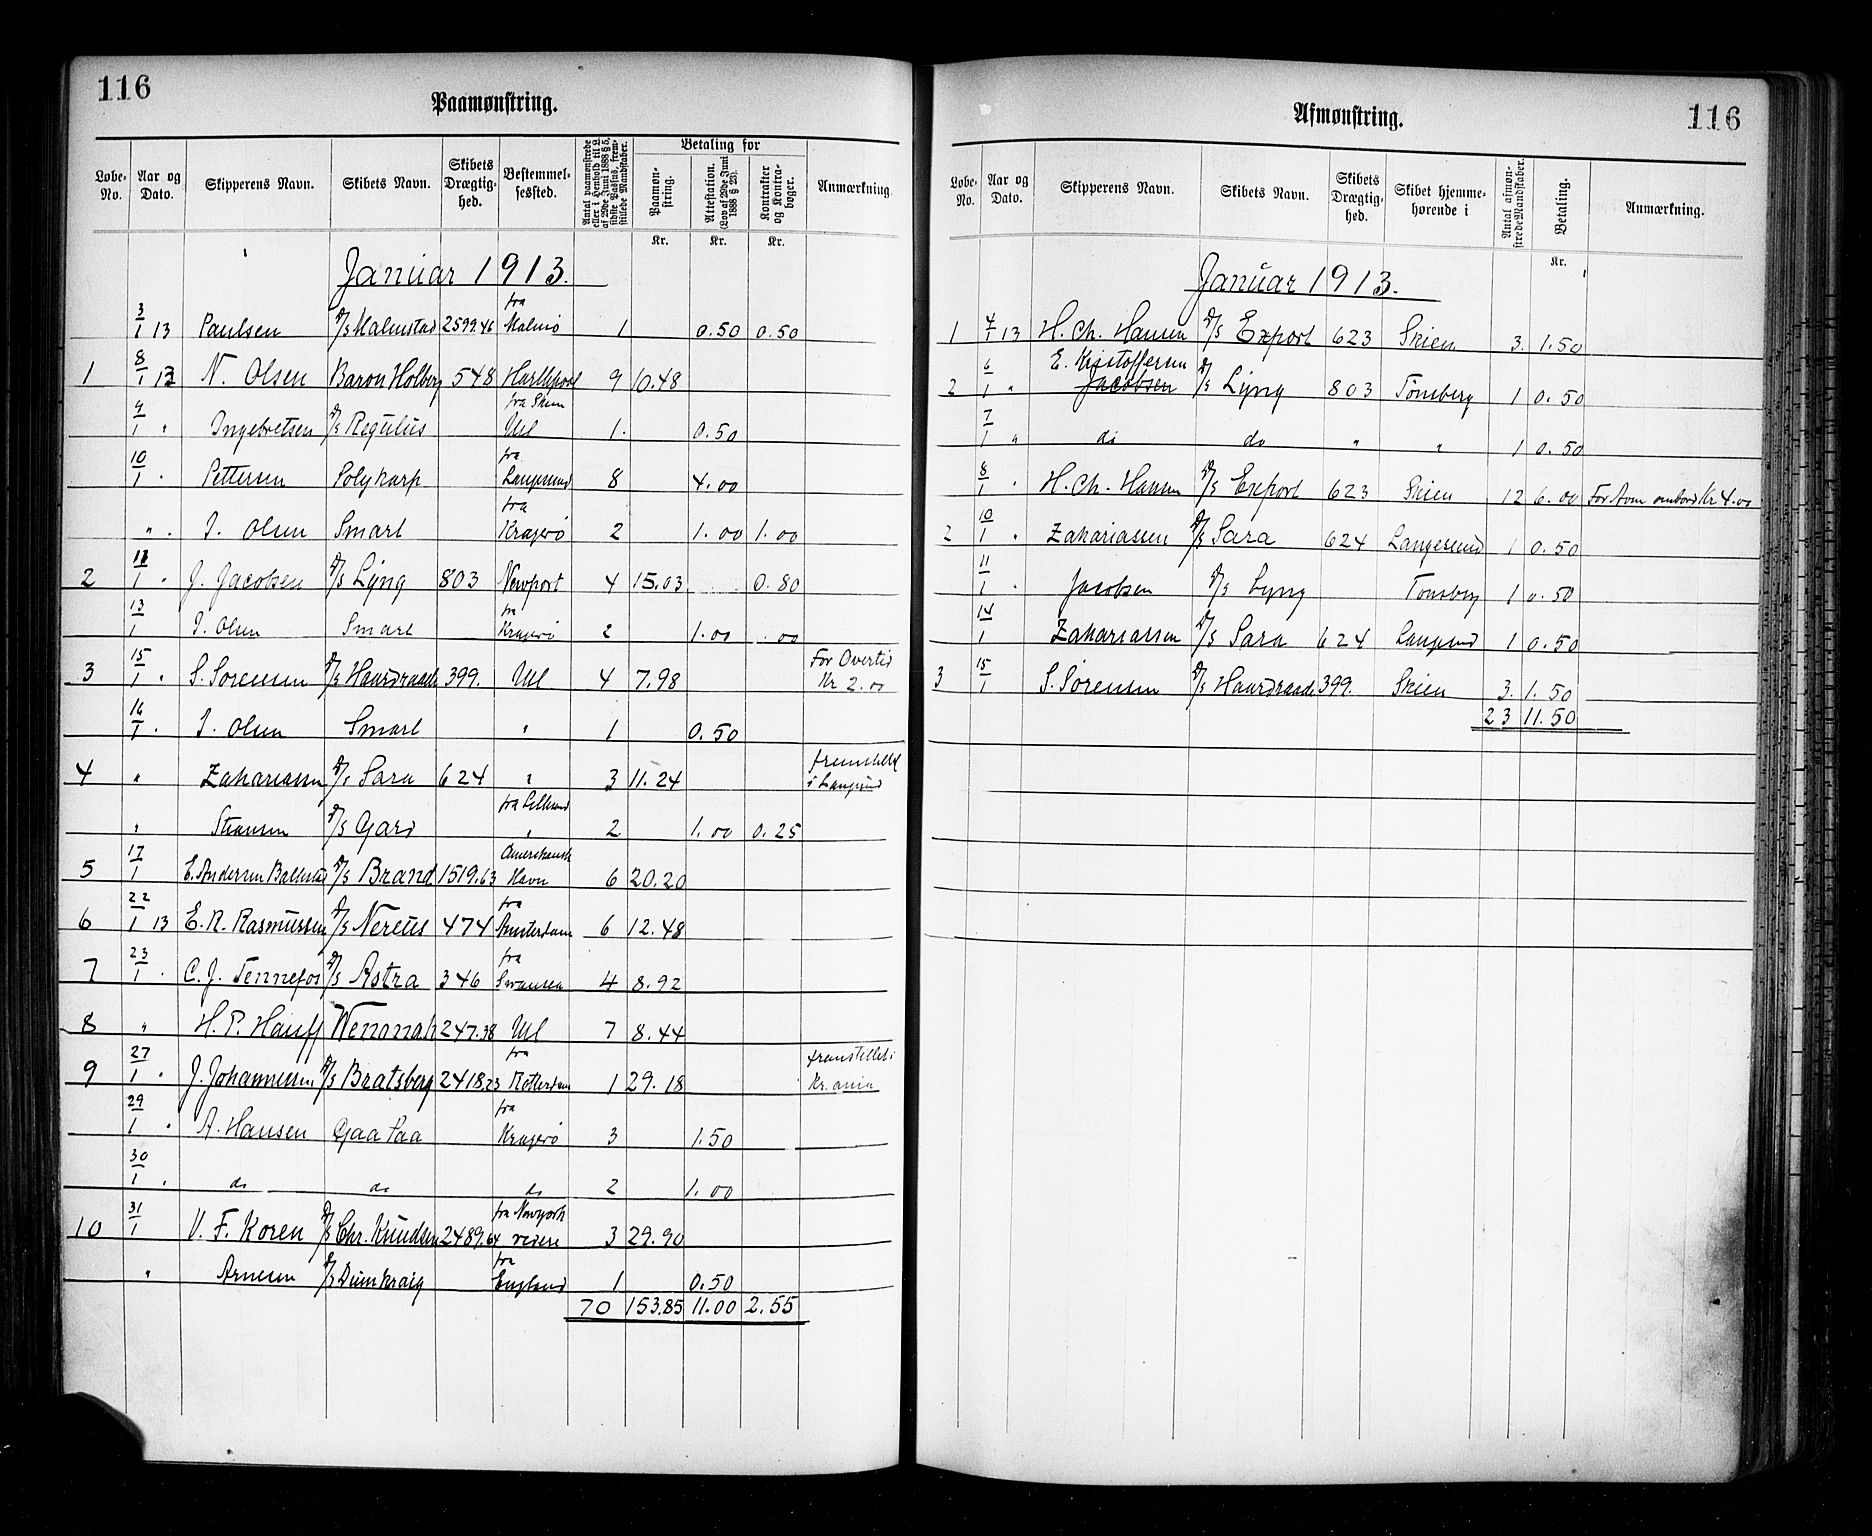 116
Paamønstring.
Løbe-No. Aar og Dato. Skipperens Navn. Skibets Navn. Skibets Drægtig-hed. Bestemmel-sessted. Antal paamønstrede eller i Henhold til L. af 29de Juni 1888 § 5, sidste Passus, frem-stillede Mandskaber. Betaling for Anmærkning
Paamøn-string. Attestation. (Lov af 29de Juni 1888 § 23). Kontrakter og Kontra-bøger.
Kr. Kr. Kr.
Januar 1913.
3/1 13 Paulsen D/S Malmstad 2599.46 fra Malmö 1 0.50 0.50
1 8/1 13 N. Olsen Baron Holberg 548 Hartlepool 9 10.48
9/1 " Ingebretsen D/S Regulus fra Skien Utl 1. 0.50
10/1 " Pettersen Polykarp fra Langesund 8 4.00
" " I. Olsen Smart fra Kragerø 2 1.00 1.00
2 11/1 " J. Jacobsen D/S Lyng 803 Newport 4 15.03 0.80
13/1 I. Olsen Smart fra Kragerø 2 1.00 .00
3 15/1 " S. Sørensen D/S Haardraade 399. Utl 4 7.98 For Overtid Kr 2.00
16/1 " I. Olsen Smart " 1 0.50
4 " Zakariassen D/S Sara 624 " 3 11.24 fremstillet i Langesund
" D/S Gard fra Lillesand " 2 1.00 0.25
5 17/1 E. Andersen D/S Brand 1519.63 Amerikansk Havn 6 20.20
6 22/1 13 E. R. Rasmussen D/S Nereus 474 fra Amsterdam 6 12.48
7 23/1 " C. J. Tennefos D/S Astra 346 fra Swansea 4 8.92
8 " H. P. Hauff Wenonah 247.38 Utl 7 8.44
9 27/1 " J. Johannessen D/S Bratsberg 2418.23 fra Rotterdam 1 29.18 fremstillet i Kr.ania
29/1 " A. Hansen Gaa Paa fra Kragerø 3 1.50
30/1 " do do do 2 1.00
10 31/1 V. F. Koren D/S Chr. Knudsen 2489.64 fra Newyork 3 29.90
" Arnesen D/S fra England 1 0.50
70 153.85 11.00 2.55
Afmønstring.
116
Løbe-No. Aar og Dato. Skipperens Navn. Skibets Navn. Skibets Drægtig-hed. Skibet hjemme-hørende i Antal afmøn-strede Mandskaber. Betaling. Anmærkning.
Kr.
Januar 1913.
1 4/1 13 H. Ch. Hansen D/S Export 623 Skien 3. 1.50
2 6/1 " E. Kristoffersen Jacobsen D/S Lyng 803 Tønsberg 1 0.50
7/1 " do do " " 1 0.50
8/1 " H. Ch. Hansen D/S Export 623 Skien 12 6.00 For Avm ombord Kr 4.00
2 10/1 " Zakariassen D/S Sara 624 Langesund 1 0.50
11/1 " Jacobsen D/S Lyng Tønsberg 1 0.50
14/1 Zakariassen D/S Sara 624 Langesund 1 0.50
3 15/1 S. Sørensen D/S Haardraade 399. Skien 3. 1.50
23 11.50